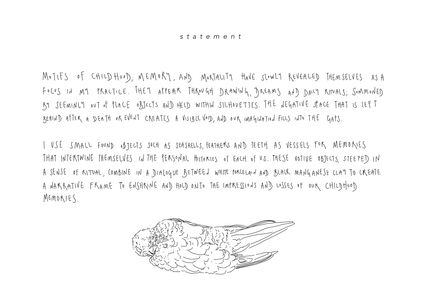 statement
MOTIFS OF CHILDHOOD, MEMORY, AND MORTALITY HAVE SLOWLY REVEALED THEMSELVES AS A
FOCUS IN MY PRACTICE. THEY APPEAR THROUGH DRAWING, DREAMS AND DAILY RITUALS, SUMMONED
BY SEEMINGLY OUT OF PLACE OBJECTS AND HELD WITHIN SILHOUETTES. THE NEGATIVE SPACE THAT IS LEFT
BEHIND AFTER A DEATH OR EVENT CREATES A VISIBLE VOID, AND OUR IMAGINATION FILLS INTO THE GAPS.
I USE SMALL FOUND OBJECTS SUCH AS SEASHELLS, FEATHERS AND TEETH AS VESSELS FOR MEMORIES
THAT INTERTWINE THEMSELVES IN THE PERSONAL HISTORIES OF EACH OF US. THESE OBJECTS, STEEPED IN
A SENSE OF RITUAL, COMBINE IN A DIALOGUE BETWEEN WHITE PORCELAIN AND BLACK MANGANESE CLAY TO CREATE
A NARRATIVE FRAME TO ENSHRINE AND HOLD ONTO THE IMPRESSIONS AND LOSSES OF OUR CHILDHOOD
MEMORIES.